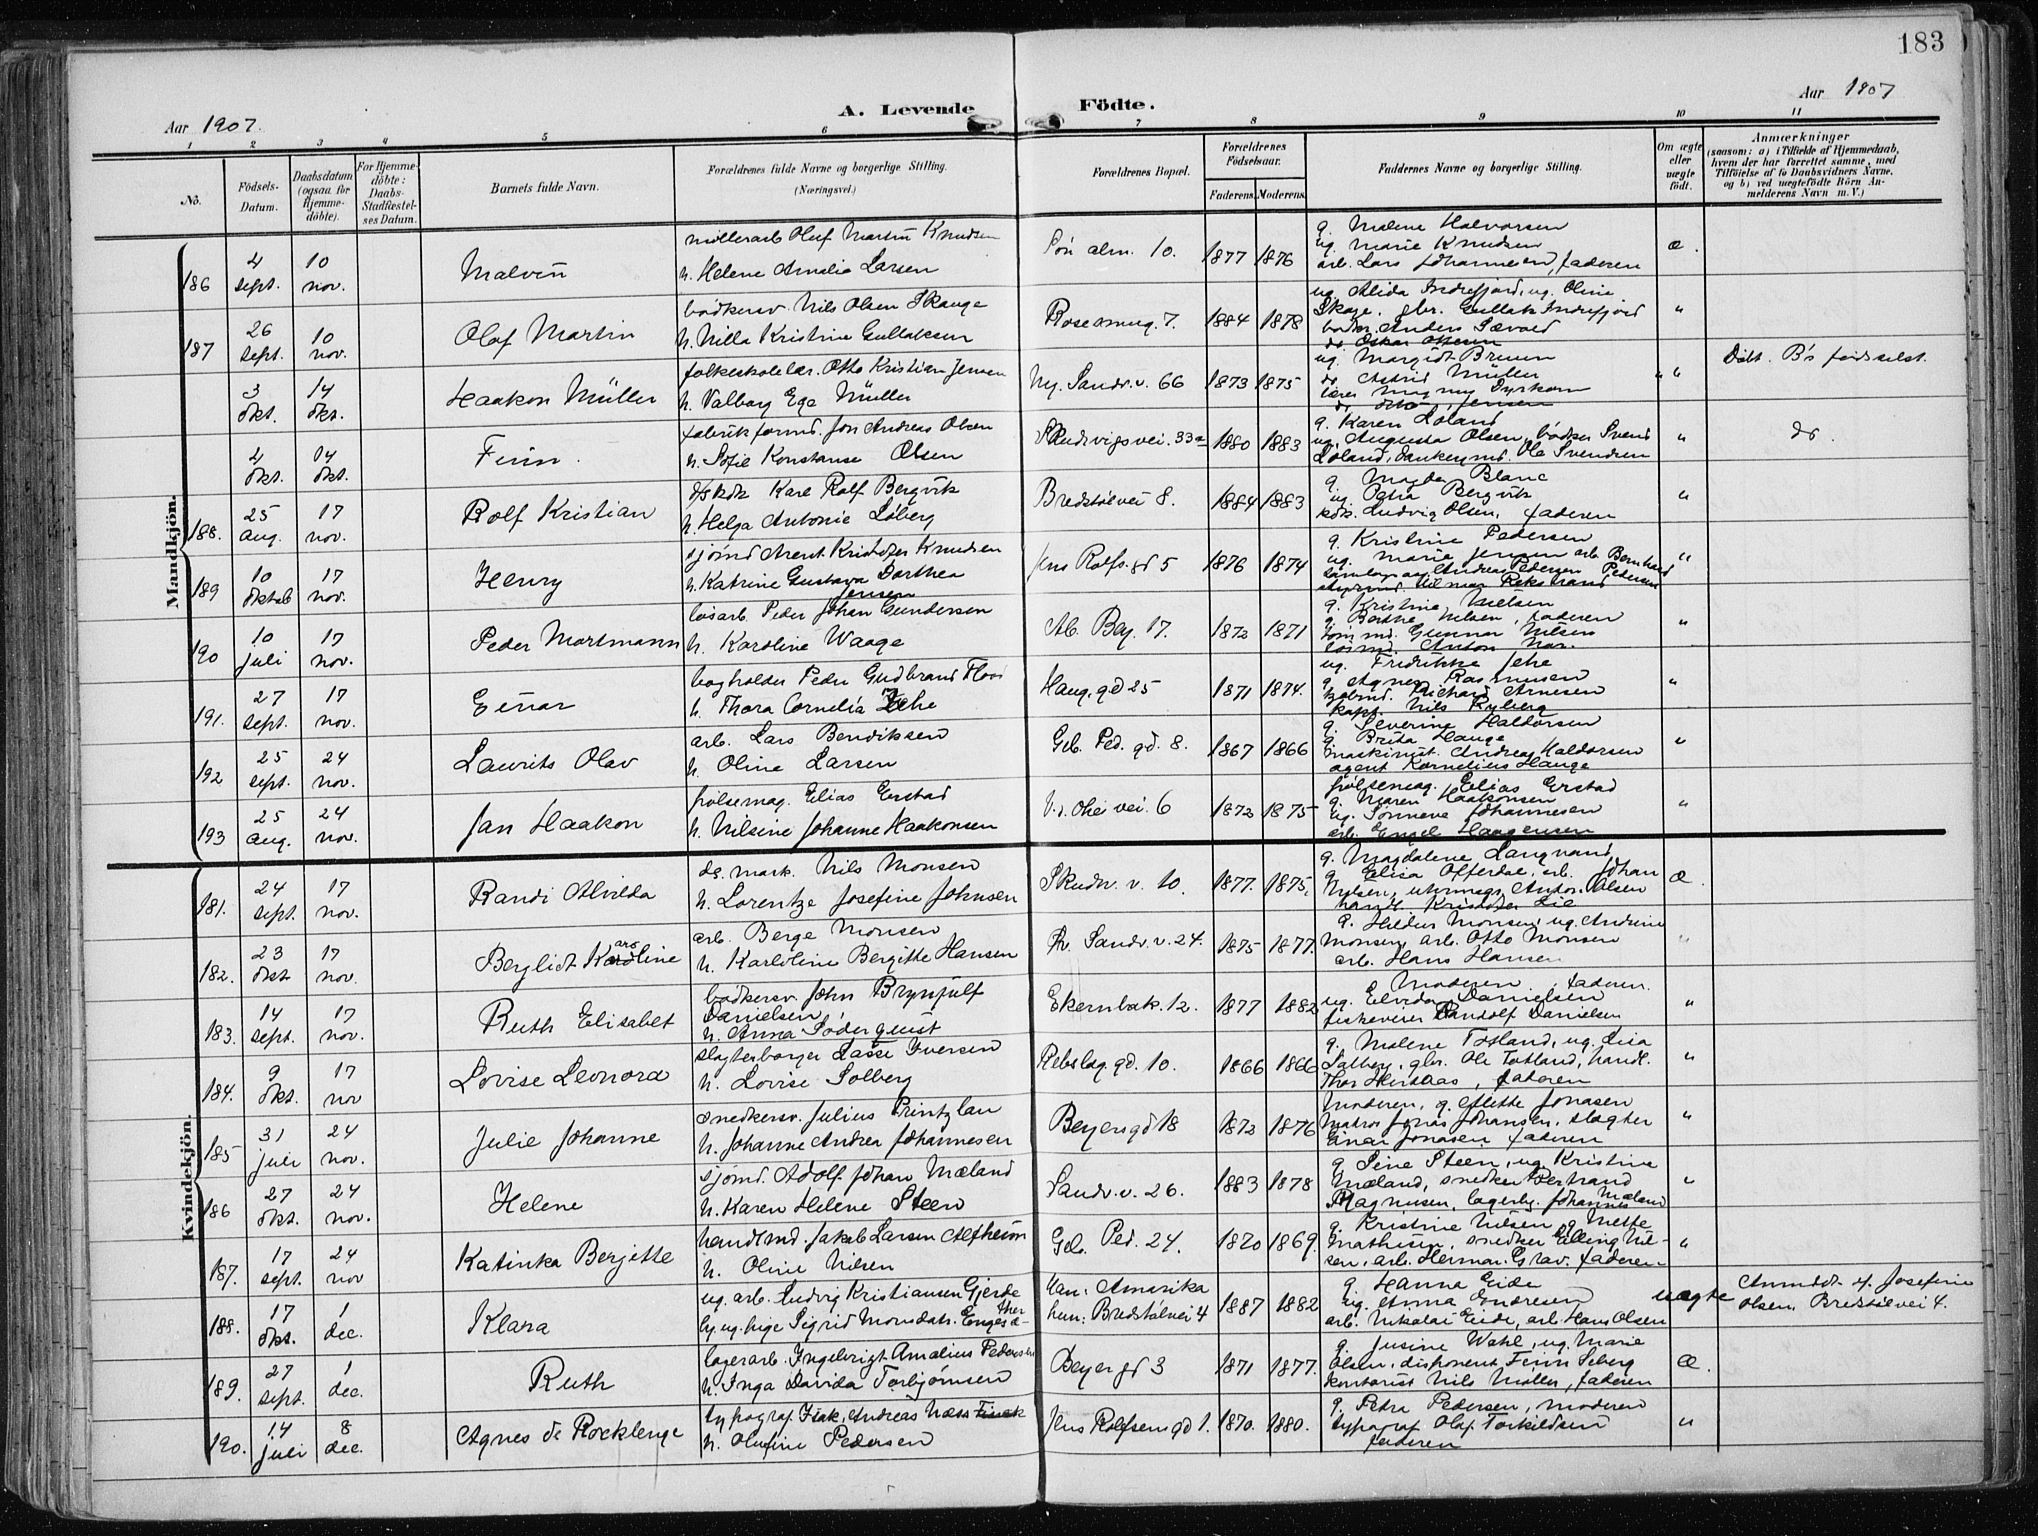 183
Aar 1907.
A. Levende Födte.
Aar 1907
1 2 3 4 5 6 7 8 9 10 11
No.
Födsels-Datum.
Daabsdatum (ogsaa for Hjemmedöbte).
For Hjemmedöbte: Daabs-Stadfæstelses Datum.
Barnets fulde Navn.
Forældrenes fulde Navne og borgerlige Stilling. (Næringsvei.)
Forældrenes Bopæl.
Forældrenes Födselsaar.
Faderens. Moderens.
Faddernes Navne og borgerlige Stilling.
Om ægte eller uægte födt.
Anmærkninger (saasom: a) i Tilfælde af Hjemmedaab, hvem der har forrettet samme, med Tilföielse af to Daabsvidners Navne, og b) ved uægtefödte Börn Anmelderens Navn m. V.)
Mandkjön.
186 4 sept. 10 nov. Malvin
møllerarb Oluf Martin Knudsen
h. Helene Amalia Larsen
alm. 10. 1877 1876
g. Malene Halvorsen
ug. Marie Knudsen
arb. Lars Johannesen, faderen
æ.
187 26 sept. 10 nov. Olaf Martin
bødkersv. Nils Olsen Skauge
h. Nilla Kristine Gullaksen
Rosesmug. 7. 1884 1878
ug. Alida Indrefjord, ug. Oline
Skage, gbr. Gullak Indrefjord
bødker Anders Sævold
"
3 okt. 14 okt. Haakon Müller
folkeskolelær. Otto Kristian Jensen
h. Valborg Ege Müller
Ny. Sandv. v. 66 1873 1875
do Oskar Ottesen
ug. Margidt Bruun
do Astrid Müller
lærer Magnus Dyrkorn
do Otto Jensen
" "
Døbt. B's fødselst.
4 okt. 14 okt. Finn.
fabrikformd. Jon Andreas Olsen
h. Sofie Konstanse Olsen
Skudevigsvei. 33a 1880 1883
g. Karen Loland
ug. Augusta Olsen, bødker Svend
Loland, Ole Svendsen
"
do.
188. 25 aug. 17 nov. Rolf Kristian
Karl Rolf Bergvik
h. Helga Antonie Løberg
Bredstølvei 8. 1884 1883
g. Magda Blanc
ug. Petra Bergvik
kdk. Ludvig Olsen, faderen
"
189 10 oktob 17 nov. Henry
sjømd Arent Kristofer Knudsen
h. Katrine Gustava Dorthea
Jensen
Jens Rolfs. gd 5 1876 1874
g. Kristine Pedersen
ug. Marie Jensen arb. Bernhard
Andreas Pedersen Pedersen
styrmd. Hilmar Rekstrand
"
190 10 juli 17 nov. Peder Mortmann
løsarb. Peder Johan Gundersen
h. Karoline Waage
Ab. Bey. 17. 1872 1871
g. Kristine Nielsen
g. Berthe Nilsen, faderen
Gunnar Nilsen
Anton Nor.
"
191. 27 sept. 17 nov. Einar
bogholder Peder Gudbrand Floor
h. Thora Cornelia Jehe
Haug. gd 25 1871 1874.
ug. Fredrikke Jehe
g. Agnes Rasmusen
Richard Arnesen
kapt. Nils Ryberg
"
192 25 sept. 24 nov. Laurits Olav
arb. Lars Bendiksen
h. Oline Larsen
Geb. Ped. gd. 8. 1867 1866
g. Severine Haldorsen
g. Brita Hauge
maskinist. Andreas Haldorsen
agent Kornelius Hauge
"
193 25 aug. 24 nov. Jan Haakon
pølsemag. Elias Erstad
h. Nilsine Johanne Haakonsen
vei. 6 1872 1875
pølsemag. Elias Erstad
g. Maren Haakonsen
ug. Sønneve Johannesen
arb. Engel Haagensen
"
Kvindekjön.
181. 24 sept. 17 nov. Randi Alvilda
do. mark. Nils Monsen
h. Lorentze Josefine Johnsen
Skudv. v. 10. 1877. 1875.
g. Magdalene Langvand
g. Elisa Offerdal, arb. Johan
Nilsen, urmmgr. Anton Olsen
handl Kristofer Lie
Æ.
182. 23 okt 17 nov. Berglidt Karoline
arb. Berge Monsen
h. Karoline Bergitte Hansen
Sandv. v. 24. 1875 1877.
g. Hildur Monsen, ug. Andrine
Monsen, arb. Otto Monsen
arb. Hans Hansen
"
183. 14 sept. 17 nov. Ruth Elisabet
bødkersv. John Brynjulf
Danielsen
h. Anna Söderquist
Ekernbak. 12. 1877 1882
Moderen, faderen.
ug. Elvida Danielsen
fiskeveier Randolf Danielsen
"
184. 9 okt. 17 nov Lovise Leonora
slagterborger Lasse Iversen
h. Lovise Solberg
Rebslag. gd. 10. 1866 1866
g. Malene Totland, ug. Lisa
Solberg, gbr. Ole Totland, handl.
Thor Herdlaas, faderen
"
185 31 juli 24 nov. Julie Johanne
snedkersv. Julius Printzlau
h. Johanne Andrea Johannesen
Beyer gd 18 1872 1876
Moderen, g. Mette Jonasen
Matros Jonas Johansen, slagter
Einar Jonasen, faderen
"
186 27 okt. 24 nov. Helene
sjømd. Adolf Johan Mæland
h. Karen Helene Steen
Sandv. v. 26. 1883 1878
g. Sine Steen, ug. Kristine
Mæland, snedker Bertrand
Magnusen, lagerbg. Johannes Mæland
"
187. 17 sept. 24 nov Katinka Bergitte
handlmd. Jakob Larsen Alfheim
h. Oline Nilsen
Geb. Ped. 24. 1870 1869.
g. Kristine Nilsen g. Mette
Mathisen, snedker Elling Nil-
sen, arb. Herman Grav. faderen
"
188. 17 okt. 1 dec. Klara
ug. arb. Ludvig Kristiansen Gjerde
og ug. pige Sigrid Monsdatr. Engesæther
Han: Amerika
hun: Bredstølvei 4 1887 1882
g. Hanna Eide
ug. Anna Endresen
arb. Nikolai Eide, arb. Hans Olsen
uægte
Anmeldt af Josefine
Olsen Bredstølvei 4.
189. 27 sept. 1 dec. Ruth
lagerarb. Ingebrigt Amalius Pedersen
h. Inga Davida Torbjørnsen
Beyer gd 3 1871 1877.
g. Jusine Wahl, ug. Marie
Olsen, disponent Finn Seberg
kontorist Nils Møller, faderen
Æ.
190. 14 juli 8 dec. Agnes de Rocklenge
typograf Isak Andreas Næss
h. Olufine Pedersen
Jens Rolfsen gd 1. 1870. 1880.
g. Petra Pedersen, moderen
typograf Olaf Torkildsen
faderen
"